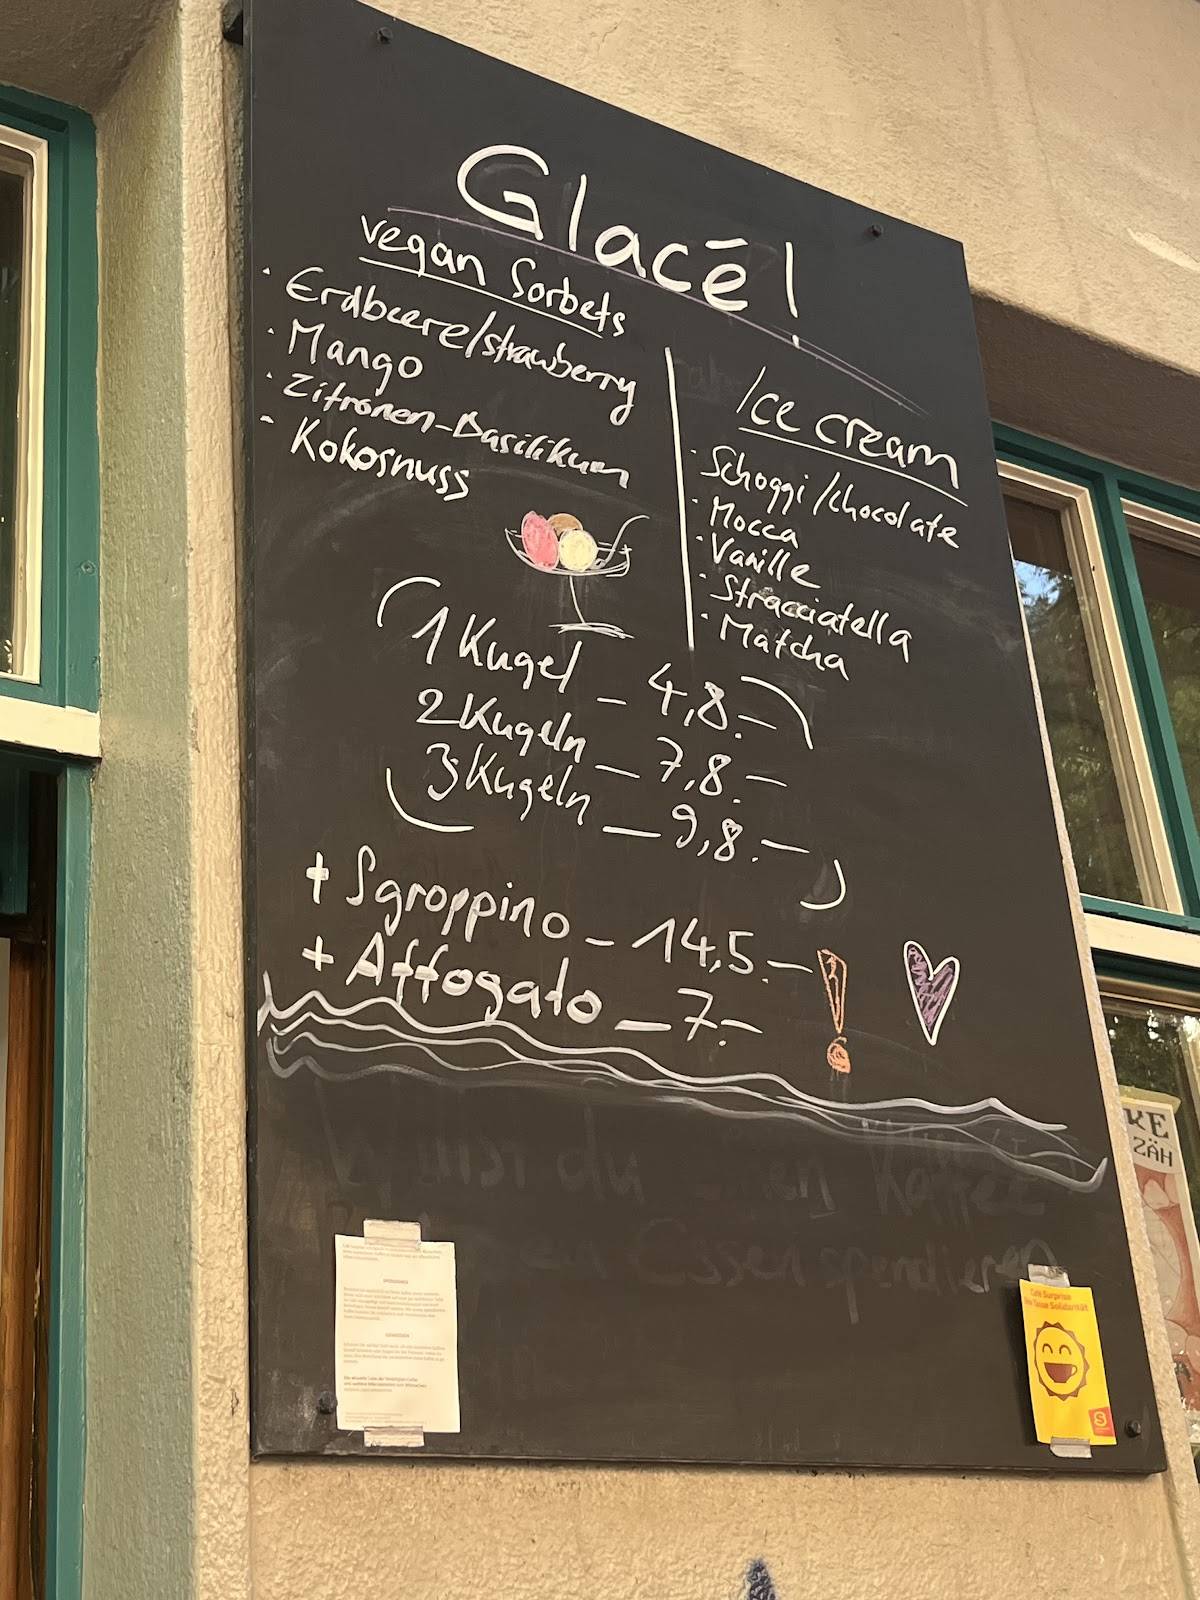 Glacé!
vegan Sorbets
· Erdbeere/strawberry
· Mango
· Zitronen-Basilikum
- Kokosnuss
Ice cream
· Schoggi/chocolate
· Mocca
· Vanille
· Stracciatella
· Matcha
1 Kugel – 4,8.–
2 Kugeln – 7,8.–
3 Kugeln – 9,8.–
+ Sgroppino – 14,5.–
+ Affogato – 7.–
du einen Kaffee
ein Essen spendieren
Café Surprise
Eine Tasse Solidarität
S
KE
ZÄH